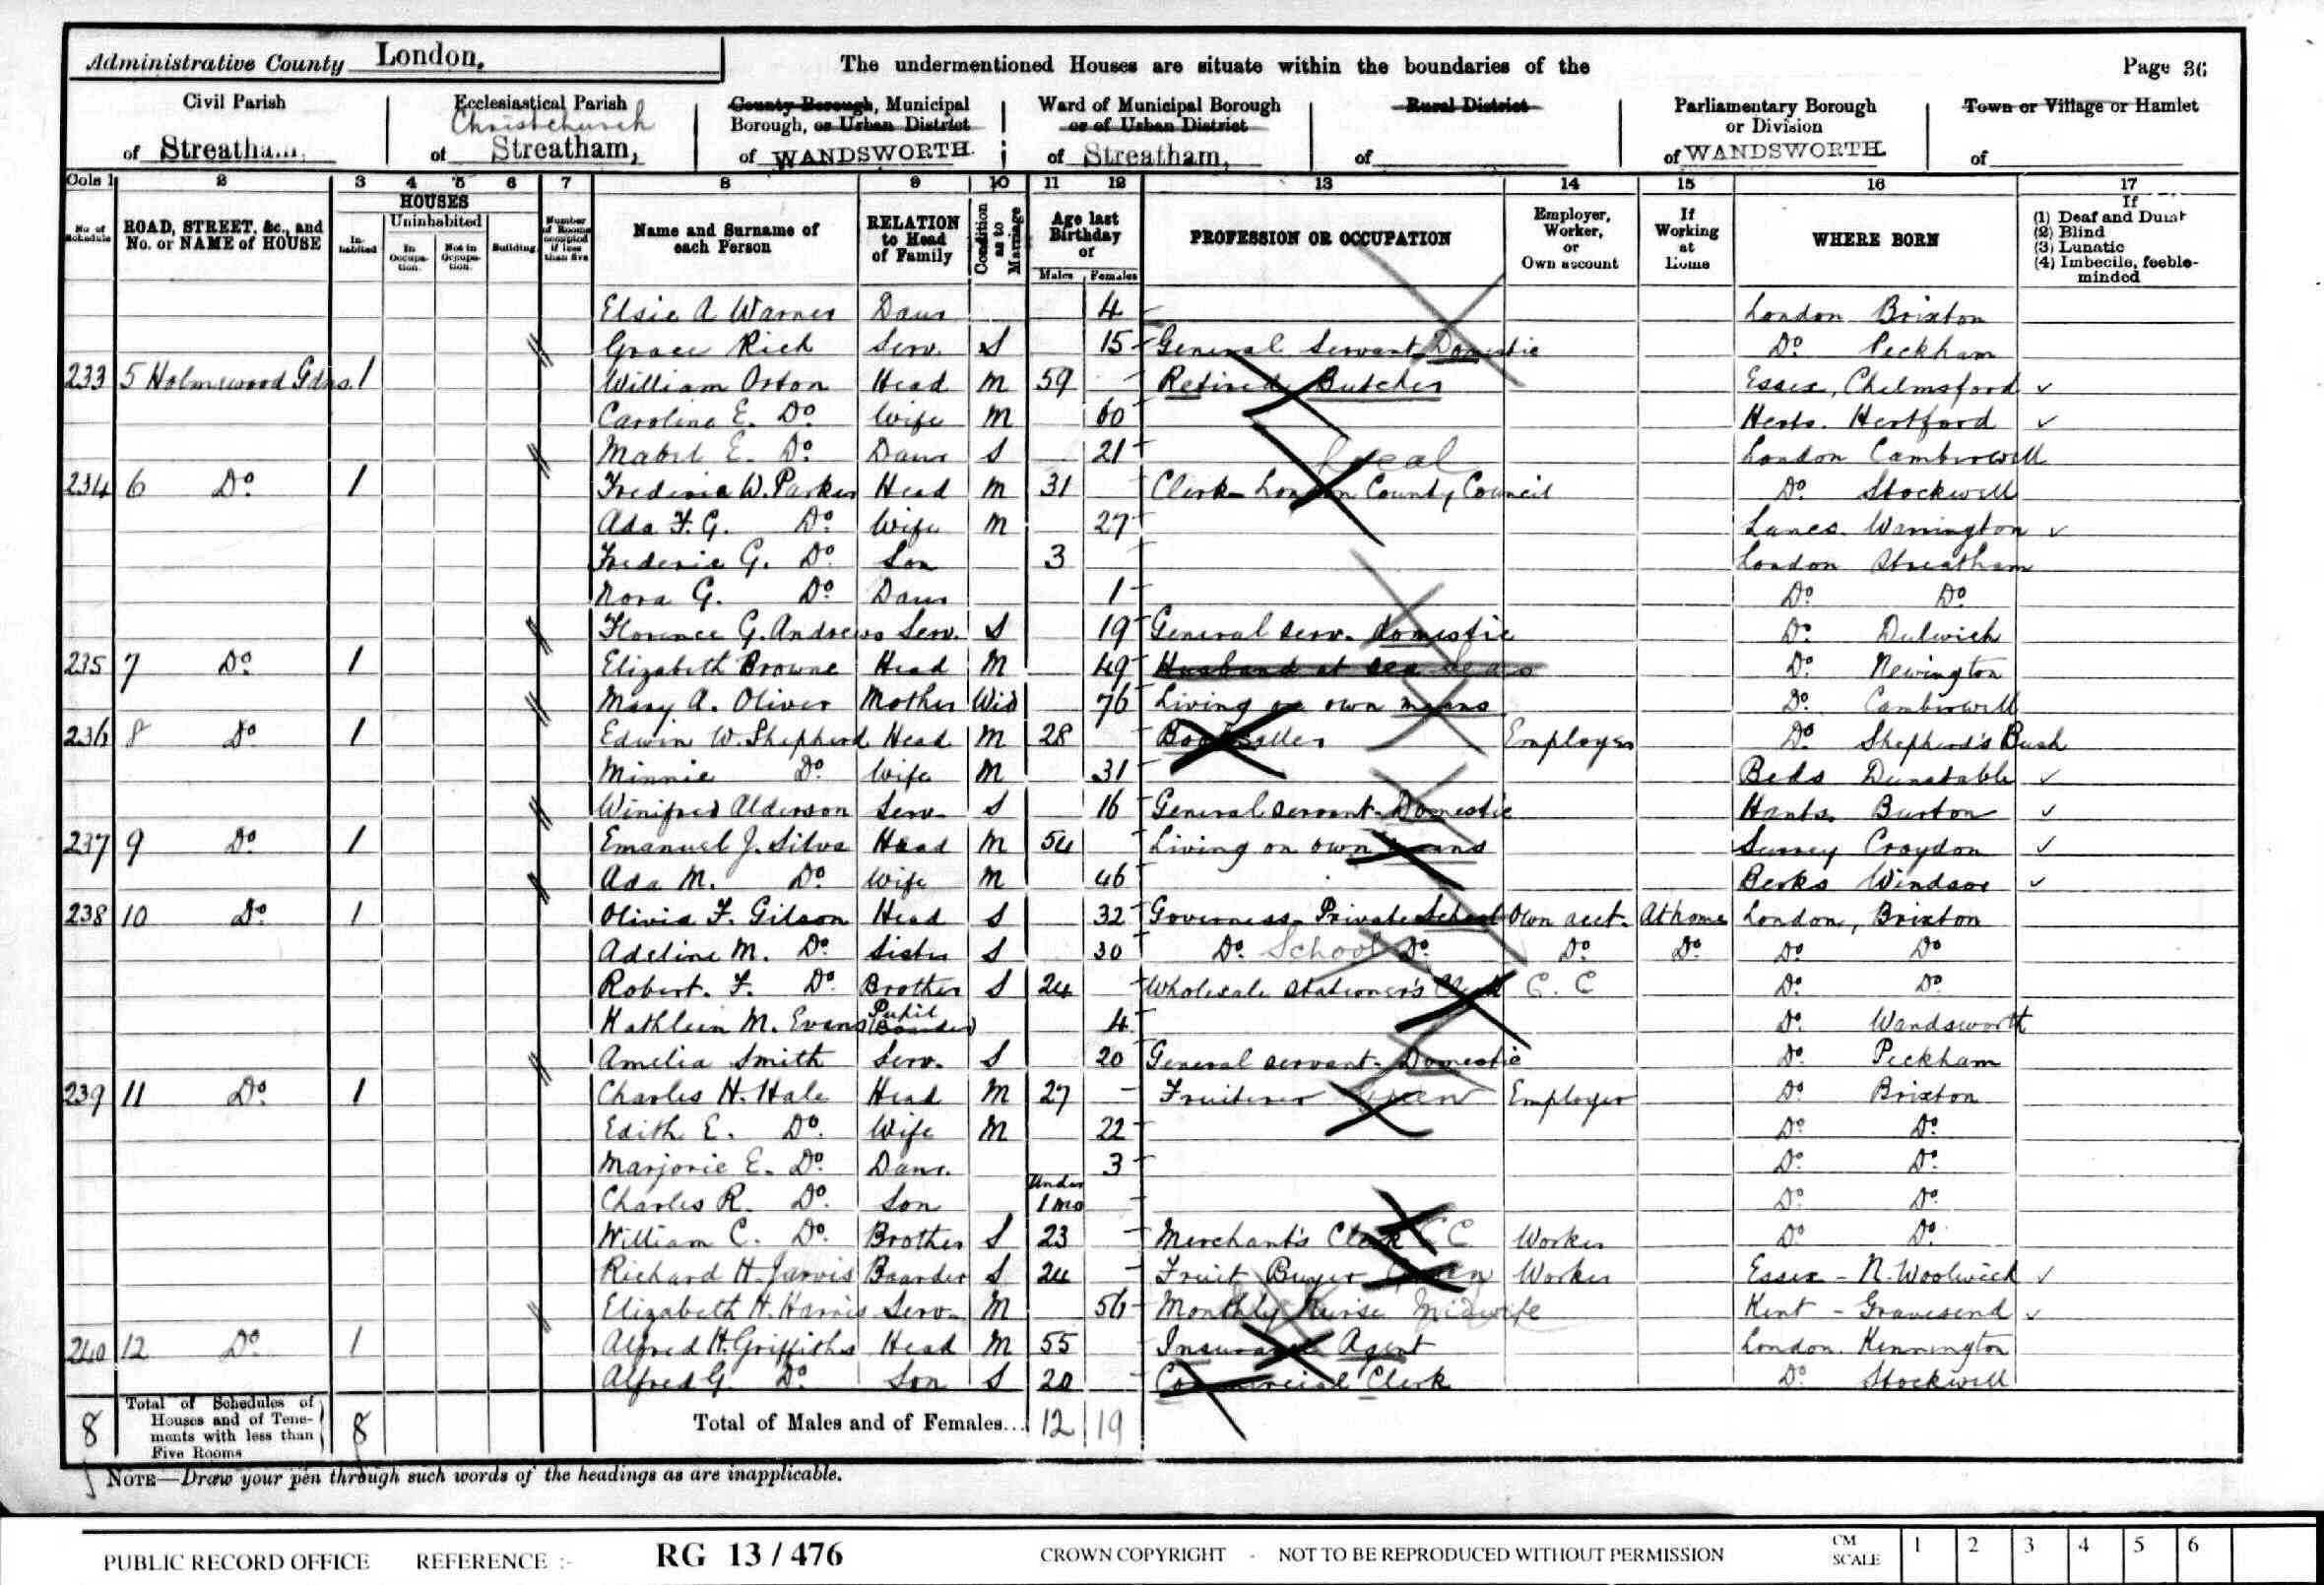 Administrative County London.
The undermentioned Houses are situate within the boundaries of the
Page 36
Civil Parish
of Streatham,
Ecclesiastical Parish
Christchurch
of Streatham,
County Borough, Municipal
Borough, or Urban District
of WANDSWORTH.
Ward of Municipal Borough
or of Urban District
of Streatham,
Rural District
of
Parliamentary Borough
or Division
of WANDSWORTH
Town or Village or Hamlet
of
Cols 1 2 3 4 5 6 7 8 9 10 11 12 13 14 15 16 17
No of Schedule
ROAD, STREET, &c., and
No. or NAME of HOUSE
HOUSES
Inhabited
Uninhabited
In Occupation.
Not in Occupation.
Building
Number of Rooms occupied if less than five
Name and Surname of
each Person
RELATION
to Head
of Family
Condition as to Marriage
Age last
Birthday
of
Males Females
PROFESSION OR OCCUPATION
Employer,
Worker,
or
Own account
If
Working
at
Home
WHERE BORN
If
(1) Deaf and Dumb
(2) Blind
(3) Lunatic
(4) Imbecile, feeble-
minded
Elsie A Warner Daur 4 London Brixton
Grace Rich Serv. S 15 General Servant Domestic Do Peckham
233 5 Holmewood Gdns. 1 William Orton Head M 59 Retired Butcher Essex, Chelmsford
Caroline E. Do Wife M 60 Herts. Hertford
Mabel E. Do Daur S 21 London Camberwell
Local
234 6 Do 1 Frederic W. Parker Head M 31 Clerk London County Council Do Stockwell
Ada F. G. Do Wife M 27 Lancs. Warrington
Frederic G. Do Son 3 London Streatham
Nora G. Do Daur 1 Do Do
Florence G. Andrews Serv. S 19 General serv. domestic Do Dulwich
235 7 Do 1 Elizabeth Browne Head M 49 Husband at sea Do Newington
Mary A. Oliver Mother Wid 76 Living on own means Do Camberwell
236 8 Do 1 Edwin W. Shepherd Head M 28 Bookseller Employer Do Shepherd's Bush
Minnie Do Wife M 31 Beds Dunstable
Winifred Alderson Serv S 16 General servant Domestic Hants. Burton
237 9 Do 1 Emanuel J. Silva Head M 54 Living on own means Surrey Croydon
Ada M. Do Wife M 46 Berks Windsor
238 10 Do 1 Olivia F. Gilson Head S 32 Governess Private School Own acct. At home London, Brixton
Adeline M. Do Sister S 30 Do School Do Do Do Do Do
Robert. F. Do Brother S 24 Wholesale Stationer's Clerk C. C Do Do
Kathleen M. Evans Pupil (Boarder) 4 Do Wandsworth
Amelia Smith Serv. S 20 General servant. Domestic Do Peckham
239 11 Do 1 Charles H. Hale Head M 27 Fruiterer Employer Do Brixton
Edith E. Do Wife M 22 Do Do
Marjorie E. Do Daur. 3 Do Do
Charles R. Do Son Under 1 mo Do Do
William C. Do Brother S 23 Merchant's Clerk C C Worker Do Do
Richard H. Jarvis Boarder S 24 Fruit Buyer Worker Essex - N. Woolwich
Elizabeth H. Harris Serv. M 56 Monthly Nurse Midwife Kent - Gravesend
240 12 Do 1 Alfred H. Griffiths Head M 55 Insurance Agent London. Kennington
Alfred G. Do Son S 20 Commercial Clerk Do Stockwell
8 Total of Schedules of
Houses and of Tene-
ments with less than
Five Rooms 8
Total of Males and of Females... 12 19
NOTE—Draw your pen through such words of the headings as are inapplicable.
PUBLIC RECORD OFFICE REFERENCE :- RG 13 / 476 CROWN COPYRIGHT - NOT TO BE REPRODUCED WITHOUT PERMISSION CM SCALE 1 2 3 4 5 6